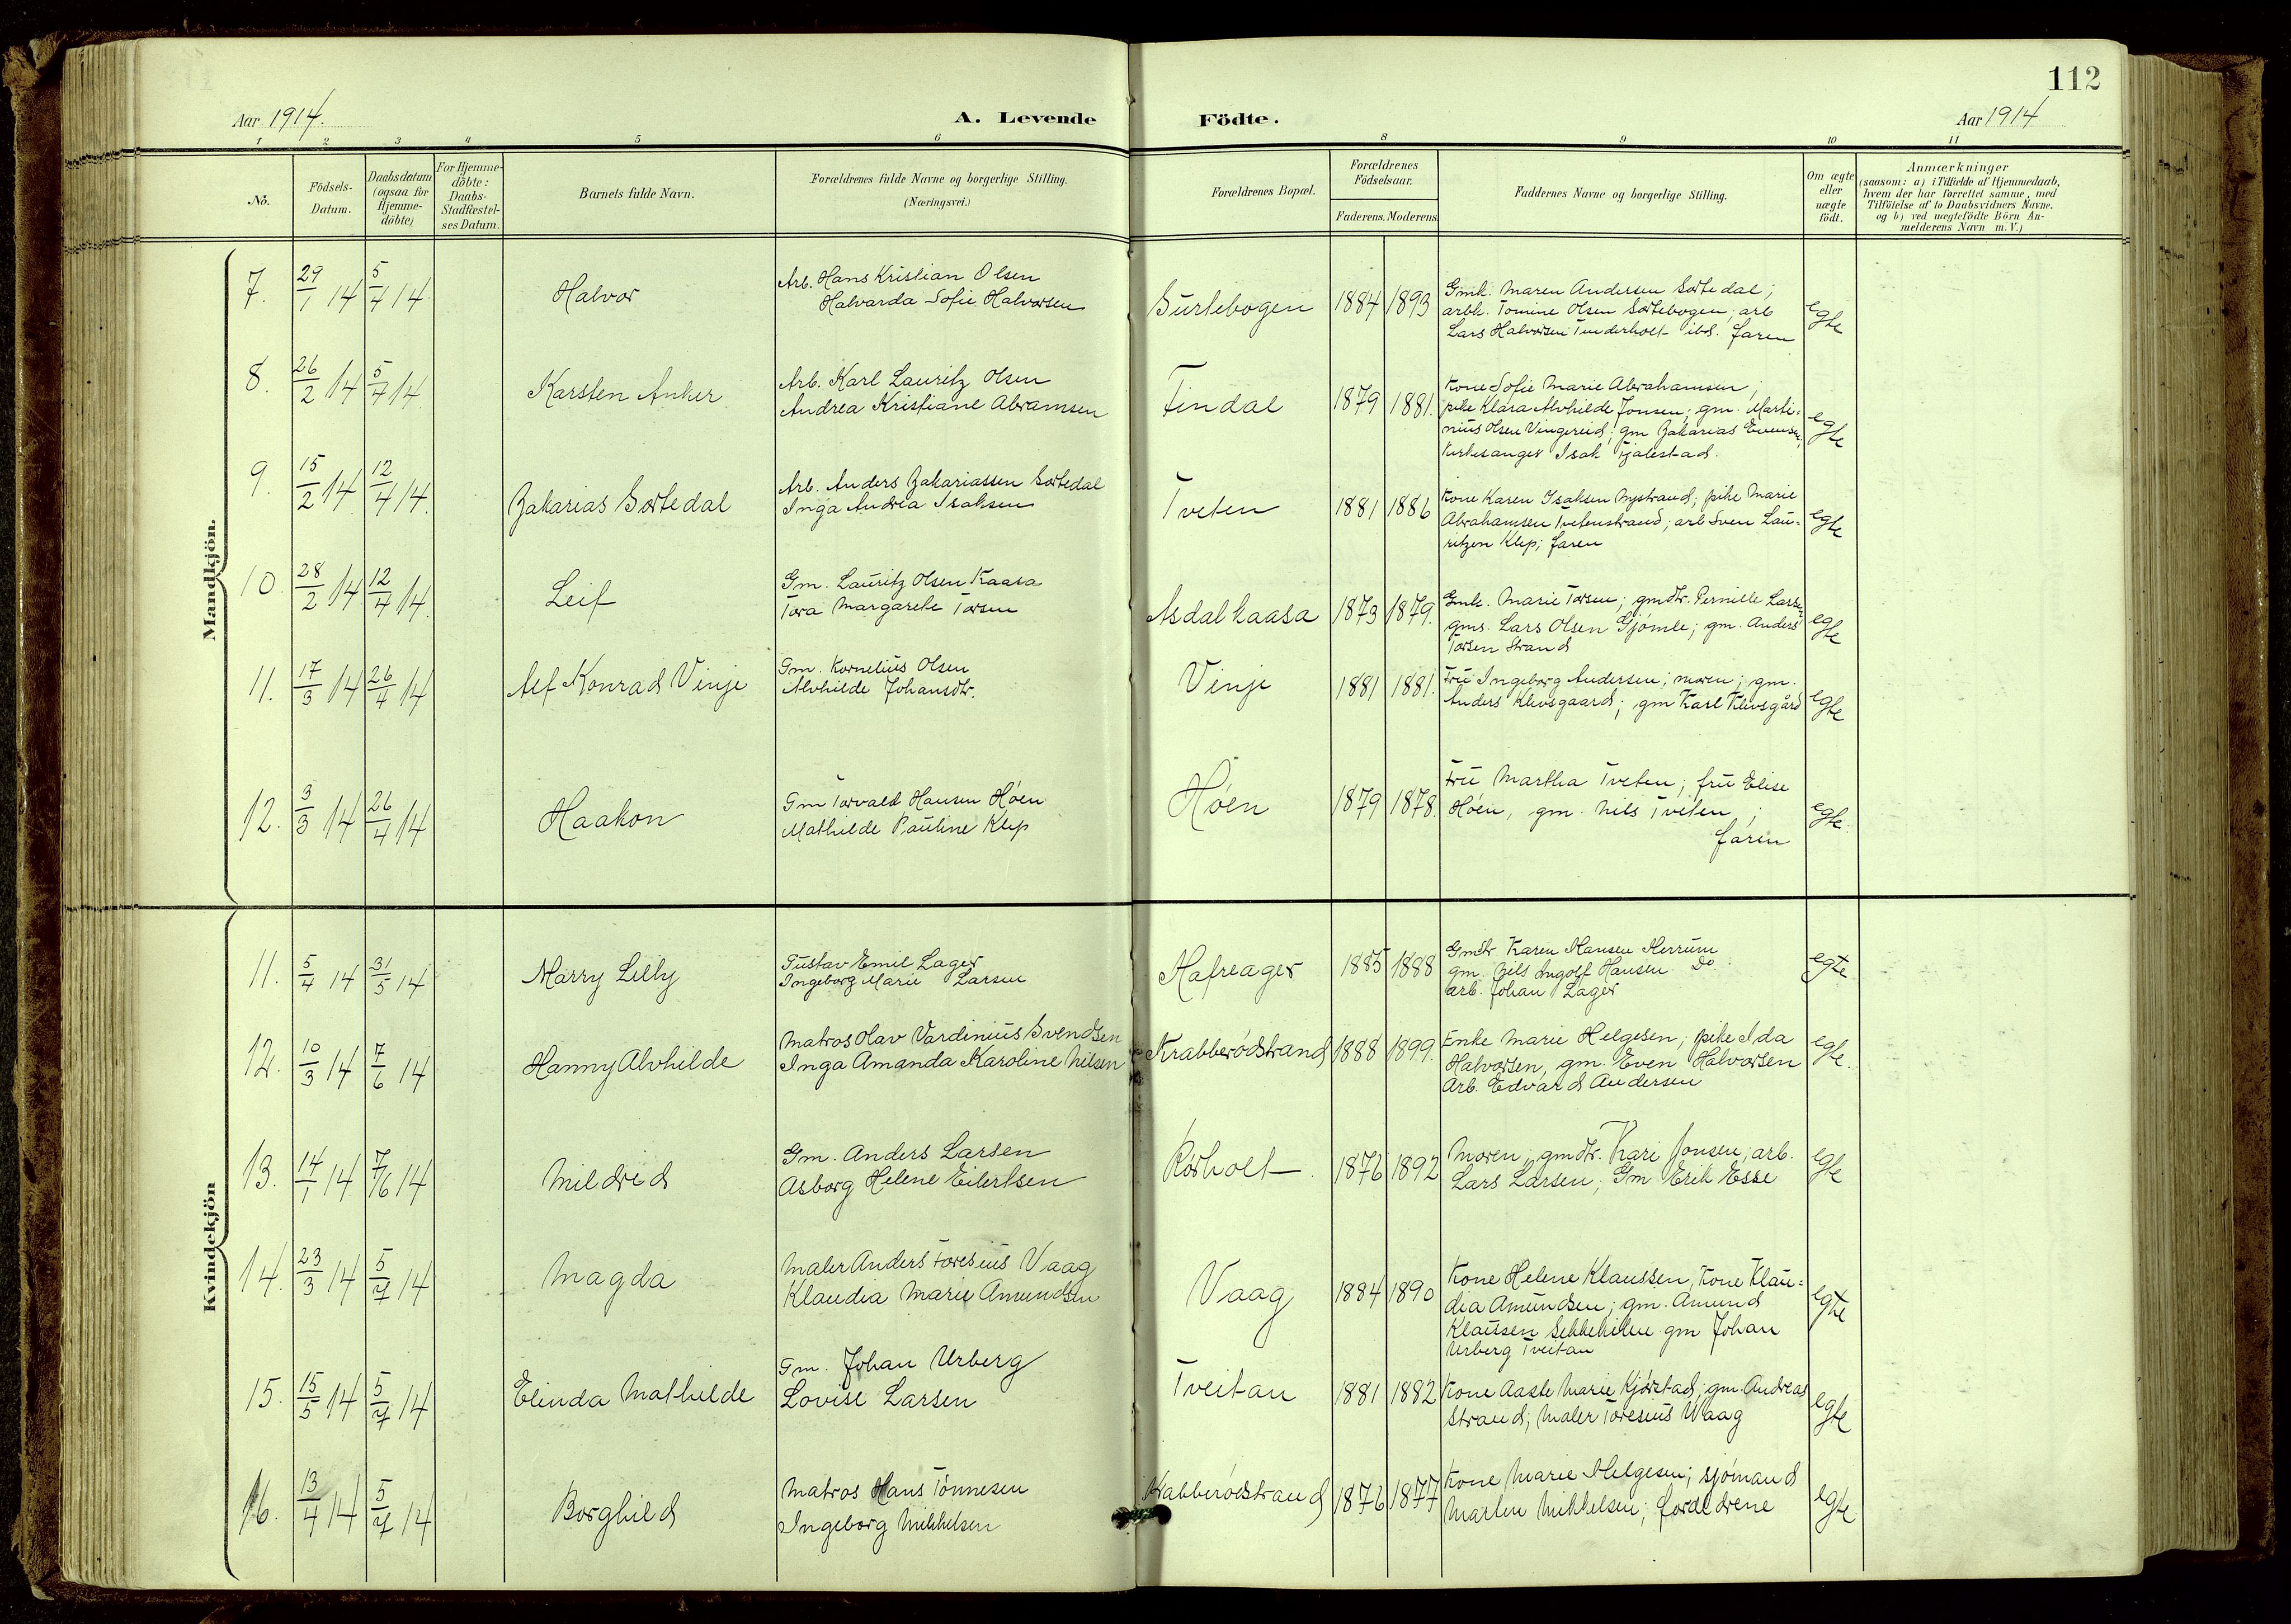 112
Aar 1914.
A. Levende Födte.
Aar 1914
1 2 3 4 5 6 8 9 10 11
No.
Födsels-Datum.
Daabsdatum (ogsaa for Hjemme-döbte)
For Hjemme-döbte: Daabs-Stadfæstel-ses Datum.
Barnets fulde Navn.
Forældrenes fulde Navne og borgerlige Stilling.
(Næringsvei.)
Forældrenes Bopæl.
Forældrenes Födselsaar.
Faderens. Moderens.
Faddernes Navne og borgerlige Stilling.
Om ægte eller uægte födt.
Anmærkninger
(saasom: a) i Tilfælde af Hjemmedaab,
hvem der har forrettet samme, med
Tilföielse af to Daabsvidners Navne.
og b) ved uægtefödte Börn An-
melderens Navn m. V.)
Mandkjön.
7. 29/1 14 5/4 14 Halvor
Arb. Hans Kristian Olsen
Halvarda Sofie Halvorsen
Surtebogen 1884 1893
Gmk. Maren Andersen Sortedal;
arbk. Tomine Olsen Sortebogen; arb
Lars Halvorsen Tinderholt ibd. faren
egte
8. 26/2 14 5/4 14 Karsten Anker
Arb. Karl Lauritz Olsen
Andrea Kristiane Abramsen
Findal 1879 1881.
Kone Sofie Marie Abrahamsen;
pike Klara Alvhilde Jonsen; gm. Marti-
nius Olsen Vingereid; gm Zakarias Evensen,
Kirkesanger Isak Fjalestad.
egte
9. 15/2 14 12/4 14. Zakarias Sortedal
Arb. Anders Zakariassen Sortedal
Inga Andrea Isaksen
Tveten 1881 1886
Kone Karen Isaksen Nystrand; pike Marie
Abrahamsen Tvetenstrand; arb Sven Lau-
ritzen Klep; faren
egte
10. 28/2 14 12/4 14. Leif
Gm. Lauritz Olsen Kaasa
Tora Margarete Torsen
Asdalkaasa 1873 1879.
Gmk. Marie Torsen; gmdtr. Pernille Larsen
gms. Lars Olsen Gjömle; gm. Anders
Torsen Strand
egte
11. 17/3 14 26/4 14 Alf Konrad Vinje
Gm. Kornelius Olsen
Alvhilde Johansdtr.
Vinje 1881 1881.
Fru Ingeborg Andersen; moren; gm.
Anders Klevsgaard; gm Karl Klevsgård
egte
12. 3/3 14 26/4 14 Haakon
Gm Torvald Hansen Höen
Mathilde Pauline Klep
Höen 1879 1878.
Fru Martha Tveten; fru Elise
Höen, gm. Nils Tveten;
faren
egte.
Kvindekjön
11. 5/4 14 31/5 14 Marry Lilly
Gustav Emil Lager
Ingeborg Marie Larsen
Hafreager 1885 1888
Gmdtr Karen Hansen Herrum
gm. Nils Ingolf Hansen Do
arb. Johan Lager
egte
12. 10/3 14 7/6 14 Hanny Alvhilde
Matros Olav Vardinius Svendsen
Inga Amanda Karoline Nilsen
Krabberödstrand 1888 1899.
Enke Marie Helgesen; pike Ida
Halvorsen, gm. Even Halvorsen
Arb. Edvard Andersen
egte.
13. 14/1 14 7/6 14 Mildrid
Gm. Anders Larsen
Asborg Helene Eilertsen
Rörholt 1876 1892
Moren; gmdtr. Kari Jonsen; arb.
Lars Larsen; Gm Erik Esse
egte
14. 23/3 14 5/7 14 Magda
Maler Anders Toresius Vaag
Klaudia Marie Amundsen
Vaag 1884 1890
Kone Helene Klaussen, Kone Klau-
dia Amundsen; gm. Amund
Klausen Sekkekilen gm Johan
Urberg Tveitan
egte
15. 15/5 14 5/7 14 Elinda Mathilde
Gm. Johan Urberg
Lovise Larsen
Tveitan 1881 1882
Kone Aaste Marie Kjörstad; gm. Andreas
Strand; Maler Toresius Waag
egte
16. 13/4 14 5/7 14 Borghild
Matros Hans Tönnesen
Ingeborg Mikkelsen
Krabberödstrand 1876 1877
Kone Marie Helgesen; sjömand
Martin Mikkelsen; foreldrene
egte